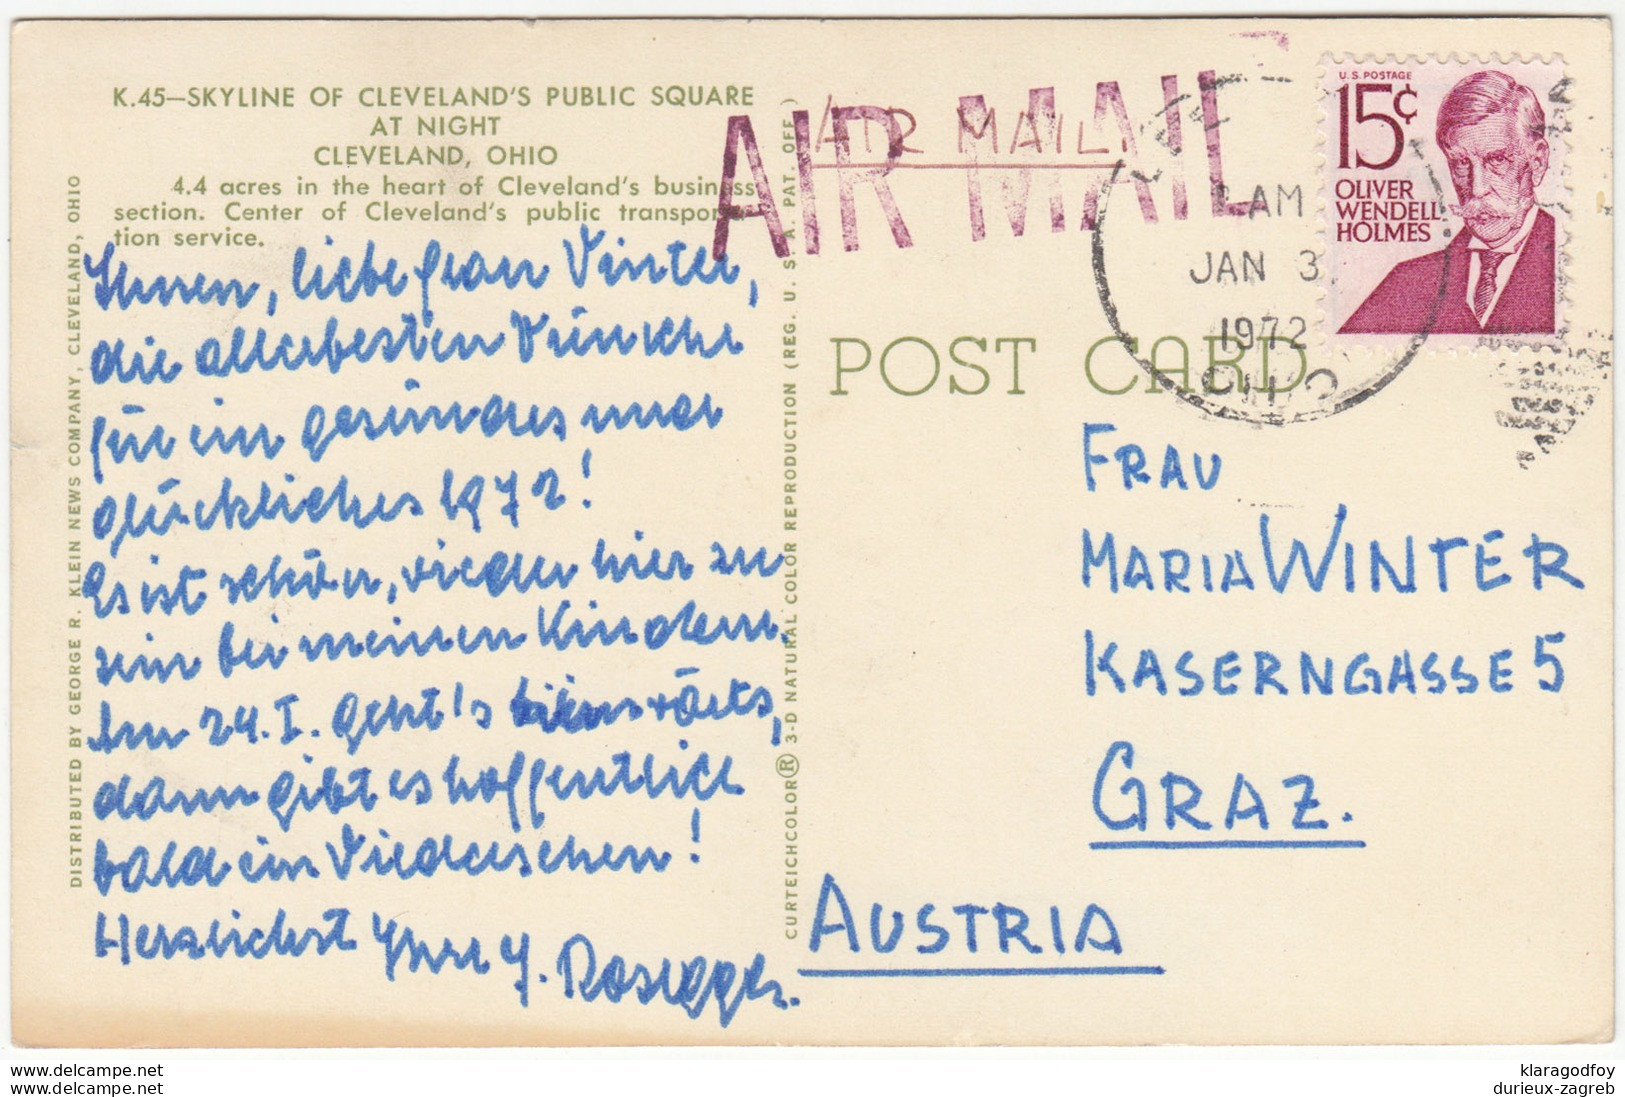 K.45—SKYLINE OF CLEVELAND'S PUBLIC SQUARE
AT NIGHT
CLEVELAND, OHIO
4.4 acres in the heart of Cleveland's business
section. Center of Cleveland's public transporta-
tion service.
Ihnen, liebe Frau Winter,
die allerbesten Wünsche
für ein gesundes und
glückliches 1972!
Es ist schön, wieder hier zu
sein bei meinen Kindern.
Am 24. I. geht's heimwärts,
dann gibt es hoffentlich
bald ein Wiedersehen!
Herzlichst Ihre J. Rosegger.
DISTRIBUTED BY GEORGE R. KLEIN NEWS COMPANY, CLEVELAND, OHIO
CURTEICHCOLOR® 3-D NATURAL COLOR REPRODUCTION (REG. U. S. A. PAT. OFF.)
AIR MAIL
AIR MAIL
AM
JAN 3
1972
OHIO
U.S. POSTAGE
15¢
OLIVER
WENDELL
HOLMES
POST CARD
FRAU
MARIA WINTER
KASERNGASSE 5
GRAZ.
AUSTRIA
www.delcampe.net
www.delcampe.net
klaragodfoy
durieux-zagreb